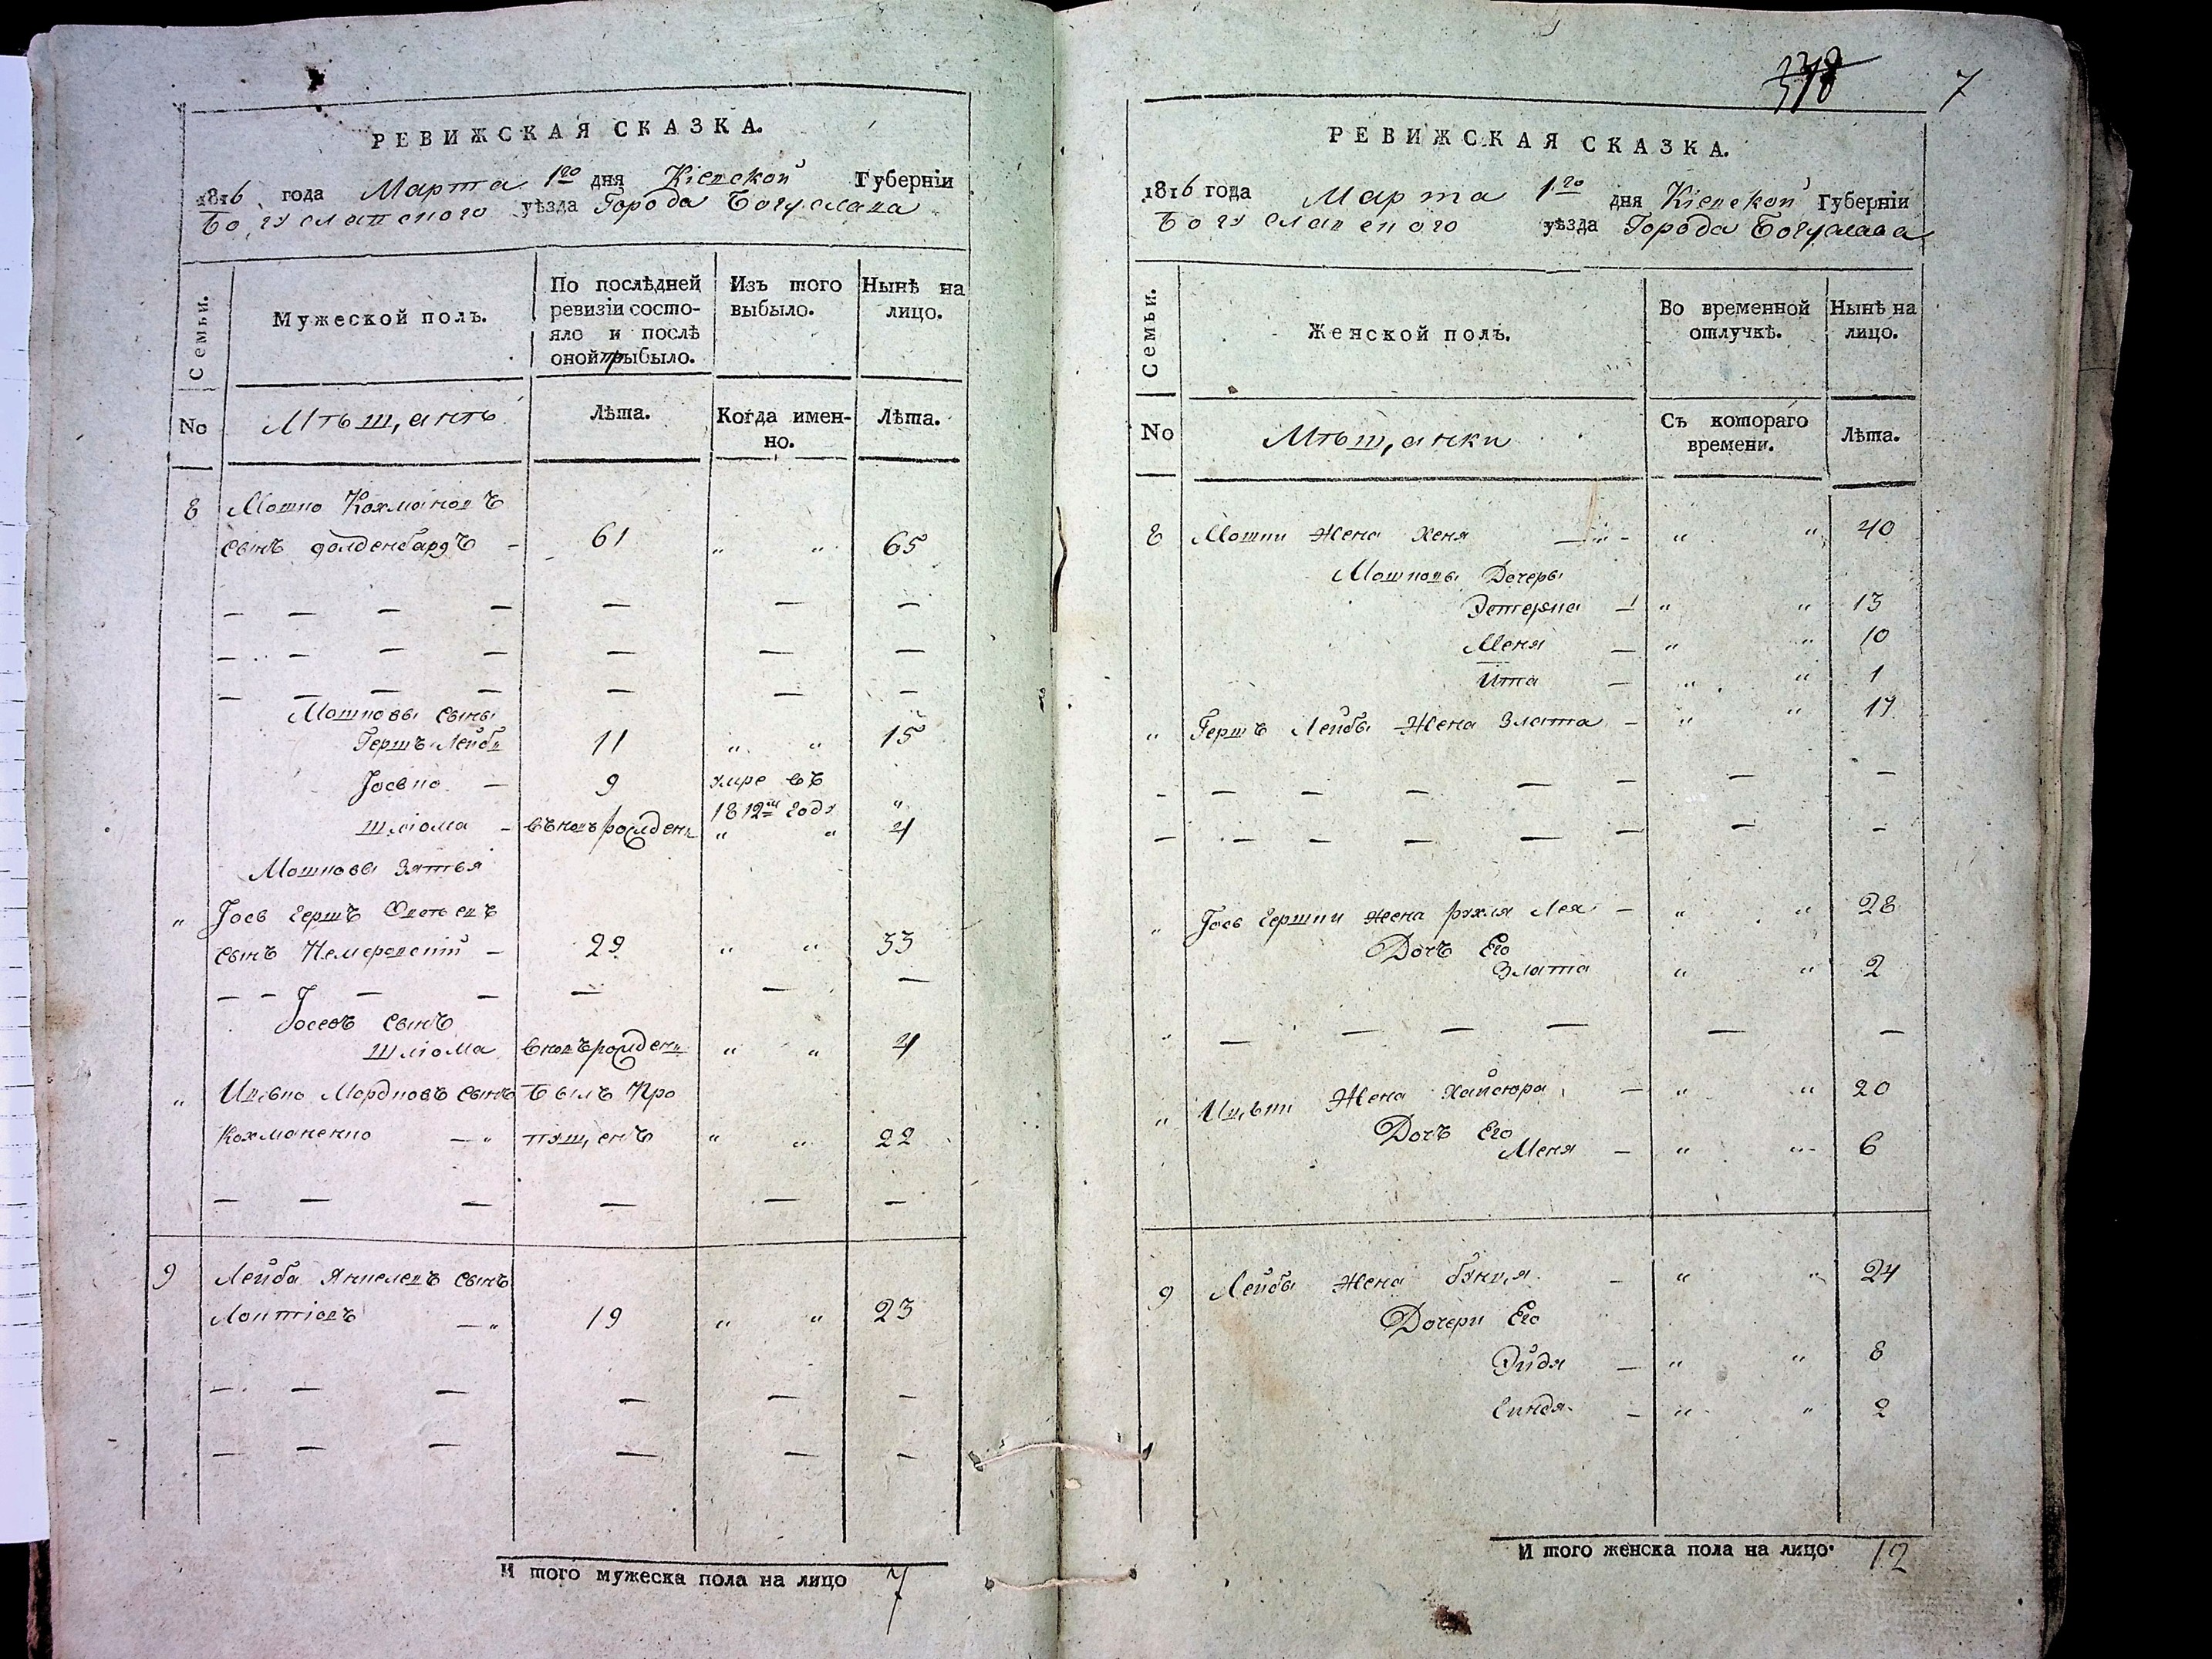 РЕВИЖСКАЯ СКАЗКА.
1816 года Марта 1го дня Кіевской Губерніи
Богуславского уѣзда Города Богуслава
Семьи.
Мужеской полъ.
По послѣдней
ревизіи состо-
яло и послѣ
оной прыбыло.
Изъ того
выбыло.
Нынѣ на
лицо.
No
Мѣщанѣ
Лѣта.
Когда имен-
но.
Лѣта.
8 Мошко Кохмановъ
сынъ Голденбаргъ - 61 " " 65
Мошковы сыны
Гершъ Лейба 11 " " 15
Іосько - 9 умре въ
1812м году "
Шліома - вновъ рожден " " 4
Мошковы Зятья
" Іось Гершъ
сынъ Немеровскій - 29 " " 33
Іосевъ сынъ
Шліома вновъ рожден " " 4
" Ицько Мордковъ сынъ Былъ Про
Кохманенко - " пущенъ " " 22
9 Лейба Янкелевъ сынъ
- " 19 " " 23
И того мужеска пола на лицо 7
378 7
РЕВИЖСКАЯ СКАЗКА.
1816 года Марта 1го дня Кіевской Губерніи
Богуславского уѣзда Города Богуслава
Семьи.
Женской полъ.
Во временной
отлучкѣ.
Нынѣ на
лицо.
No
Мѣщанки
Съ котораго
времени.
Лѣта.
8 Мошки Жена Хеня - " - " " 40
Мошковы Дочеры
Эстерка - " " 13
Меня - " " 10
Ита - " " 1
" Гершъ Лейбы Жена Злата - " " 17
" Іось Гершки жена Рухля Лея - " " 28
Дочъ Его
Злата " " 2
" Ицьки Жена Хайсюра - " " 20
Дочъ Его
Меня - " " 6
9 Лейбы Жена Бунця - " " 24
Дочери Его
Эйдя - " " 8
Гиндя - " " 2
И того женска пола на лицо 12